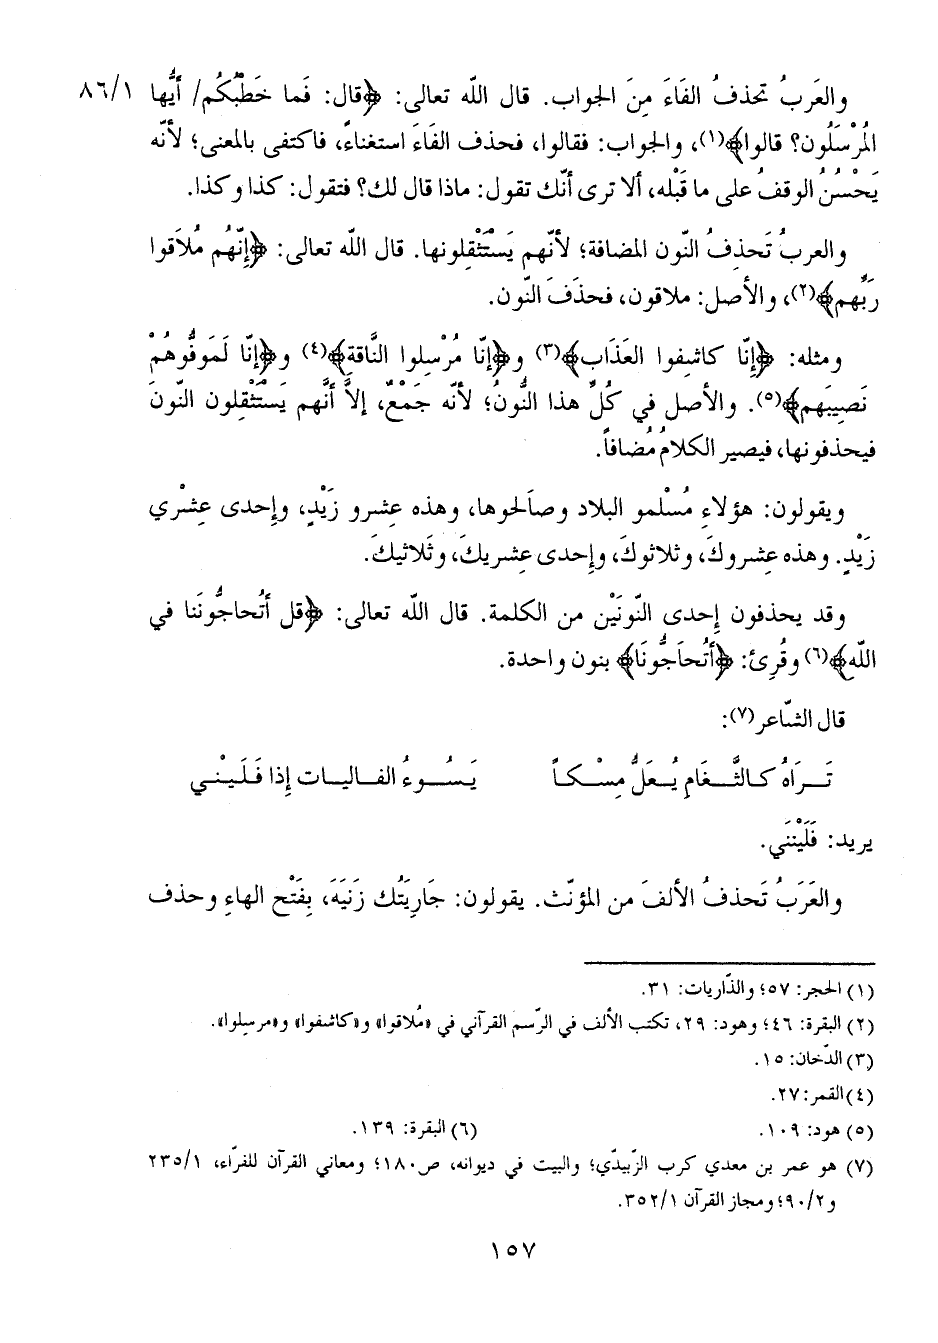 والعَربُ تحذفُ الفَاءَ مِنَ الجواب. قال الله تعالى: ﴿قال: فَما خَطْبُكُم/ أيُّها ٨٦/١
المُرْسَلُون؟ قالوا﴾(١)، والجواب: فقالوا، فحذف الفَاءَ استغناءً، فاكتفى بالمعنى؛ لأنّه
يَحْسُنُ الوقفُ على ما قبْله، ألا ترى أنّك تقول: ماذا قال لك؟ فتقول: كذا وكذا.
والعربُ تَحذِفُ النّون المضافة؛ لأنّهم يَسْتَثْقِلونها. قال الله تعالى: ﴿إنّهُم مُلاَقوا
رَبِّهم﴾(٢)، والأصل: ملاقون، فحذَفَ النّون.
ومثله: ﴿إِنَّا كاشِفوا العَذَاب﴾(٣) و﴿إنّا مُرْسِلوا النَّاقةِ﴾(٤) و﴿إنّا لَموَفُّوهُمْ
نَصِيبَهم﴾(٥). والأصل في كُلِّ هذا النُّونُ؛ لأنّه جَمْعٌ، إلاَّ أنَّهم يَسْتَثْقِلون النّونَ
فيحذفونها، فيصير الكلامُ مُضافاً.
ويقولون: هؤلاءِ مُسْلمو البلاد وصالَحوها، وهذه عِشرو زَيْدٍ، وإحدى عِشْري
زَيْدٍ. وهذه عِشروكَ، وثلاثوكَ، وإحدى عِشريكَ، وثَلاثيكَ.
وقد يحذفون إحدى النّونَيْن من الكلمة. قال الله تعالى: ﴿قل أتُحاجُّونَنا في
اللهِ﴾(٦) وقُرِئ: ﴿أَتُحَاجُّونَا﴾ بنون واحدة.
قال الشّاعر(٧):
تَـرَاهُ كـالثَّـغَامِ يُـعَلُّ مِسْـكـاً يَـسُــوءُ الفـاليـات إذا فَـلَـيْـني
يريد: فَلَيْنَني.
والعَرَبُ تَحذفُ الألفَ من المؤنّث. يقولون: جَارِيَتُك زَنَيَهَ، بِفَتْح الهاءِ وحذف
(١) الحجر: ٥٧؛ والذّاريات: ٣١.
(٢) البقرة: ٤٦؛ وهود: ٢٩، تكتب الألف في الرّسم القرآني في «مُلاقوا» و«كاشفوا» و«مرسِلوا».
(٣) الدّخان: ١٥.
(٤) القمر: ٢٧.
(٥) هود: ١٠٩. (٦) البقرة: ١٣٩.
(٧) هو عمر بن معدي كرب الزّبيدّي؛ والبيت في ديوانه، ص١٨٠؛ ومعاني القرآن للفرّاء، ٢٣٥/١
و٩٠/٢؛ ومجاز القرآن ٣٥٢/١.
١٥٧